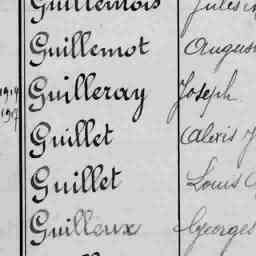 Guillemois Jules
Guillemot August
1914 Guilleray Joseph
1917
Guillet Alexis J
Guillet Louis
Guilloux Georges